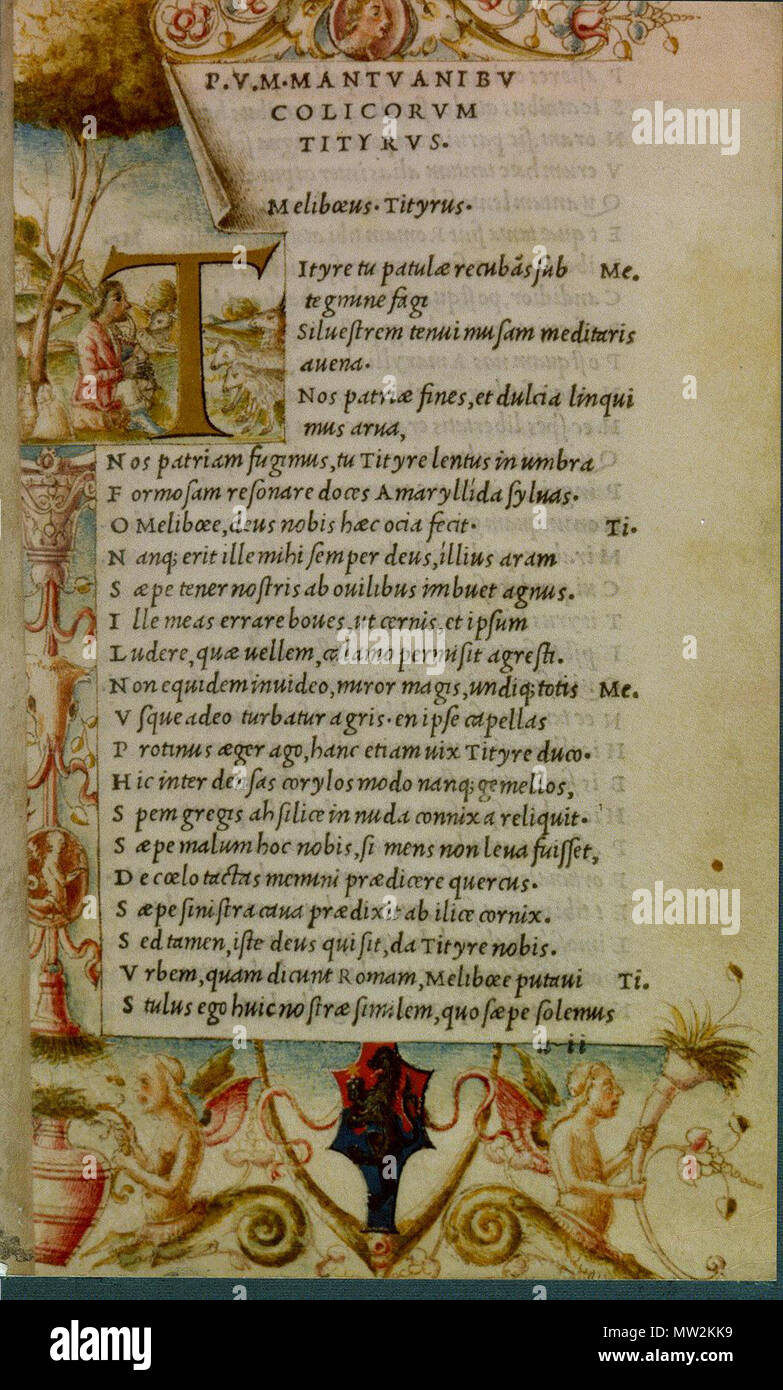 P.V.M.MANTVANI BV
COLICORVM
TITYRVS.
Meliboeus. Tityrus.
Tityre tu patulæ recubãs sub Me.
tegmine fagi
Siluestrem tenui musam meditaris
auena.
Nos patriæ fines, et dulcia linqui
mus arua,
Nos patriam fugimus, tu Tityre lentus in umbra
Formosam resonare doces Amaryllida syluas.
O Meliboee, deus nobis hæc ocia fecit. Ti.
Nanq; erit ille mihi semper deus, illius aram
Sæpe tener nostris ab ouilibus imbuet agnus.
Ille meas errare boues, ut cernis, et ipsum
Ludere, quæ uellem, calamo permisit agresti.
Non equidem inuideo, miror magis, undiq; totis Me.
Vsque adeo turbatur agris. en ipse capellas
Protinus æger ago, hanc etiam uix Tityre duco.
Hic inter densas corylos modo nanq; gemellos,
Spem gregis ah silice in nuda connixa reliquit.
Sæpe malum hoc nobis, si mens non leua fuisset,
De coelo tactas memini prædicere quercus.
Sæpe sinistra caua prædixit ab ilice cornix.
Sed tamen, iste deus qui sit, da Tityre nobis.
Vrbem, quam dicunt Romam, Meliboee putaui Ti.
Stulus ego huic nostræ similem, quo sæpe solemus
a ii
alamy
Image ID: MW2KK9
www.alamy.com